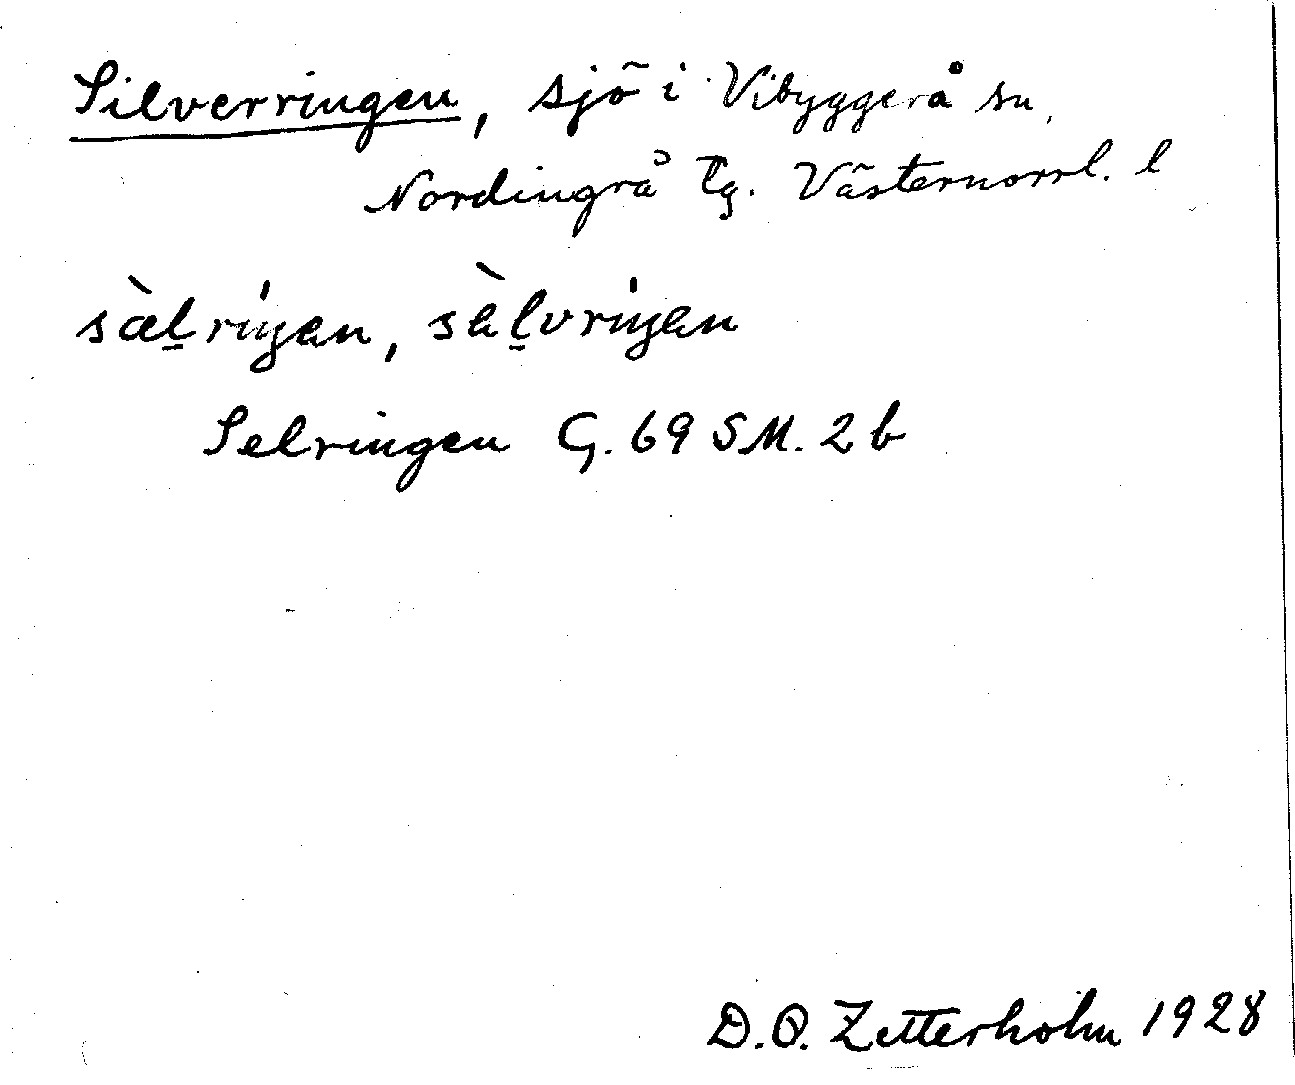 Silverringen, sjö i Vibyggerå sn,
Nordingrå tg. Västernorrl. l
sæ̀l̠riŋen, sæ̀l̠vriŋen
Selringen G. 69 SM. 2 b
D. O. Zetterholm 1928